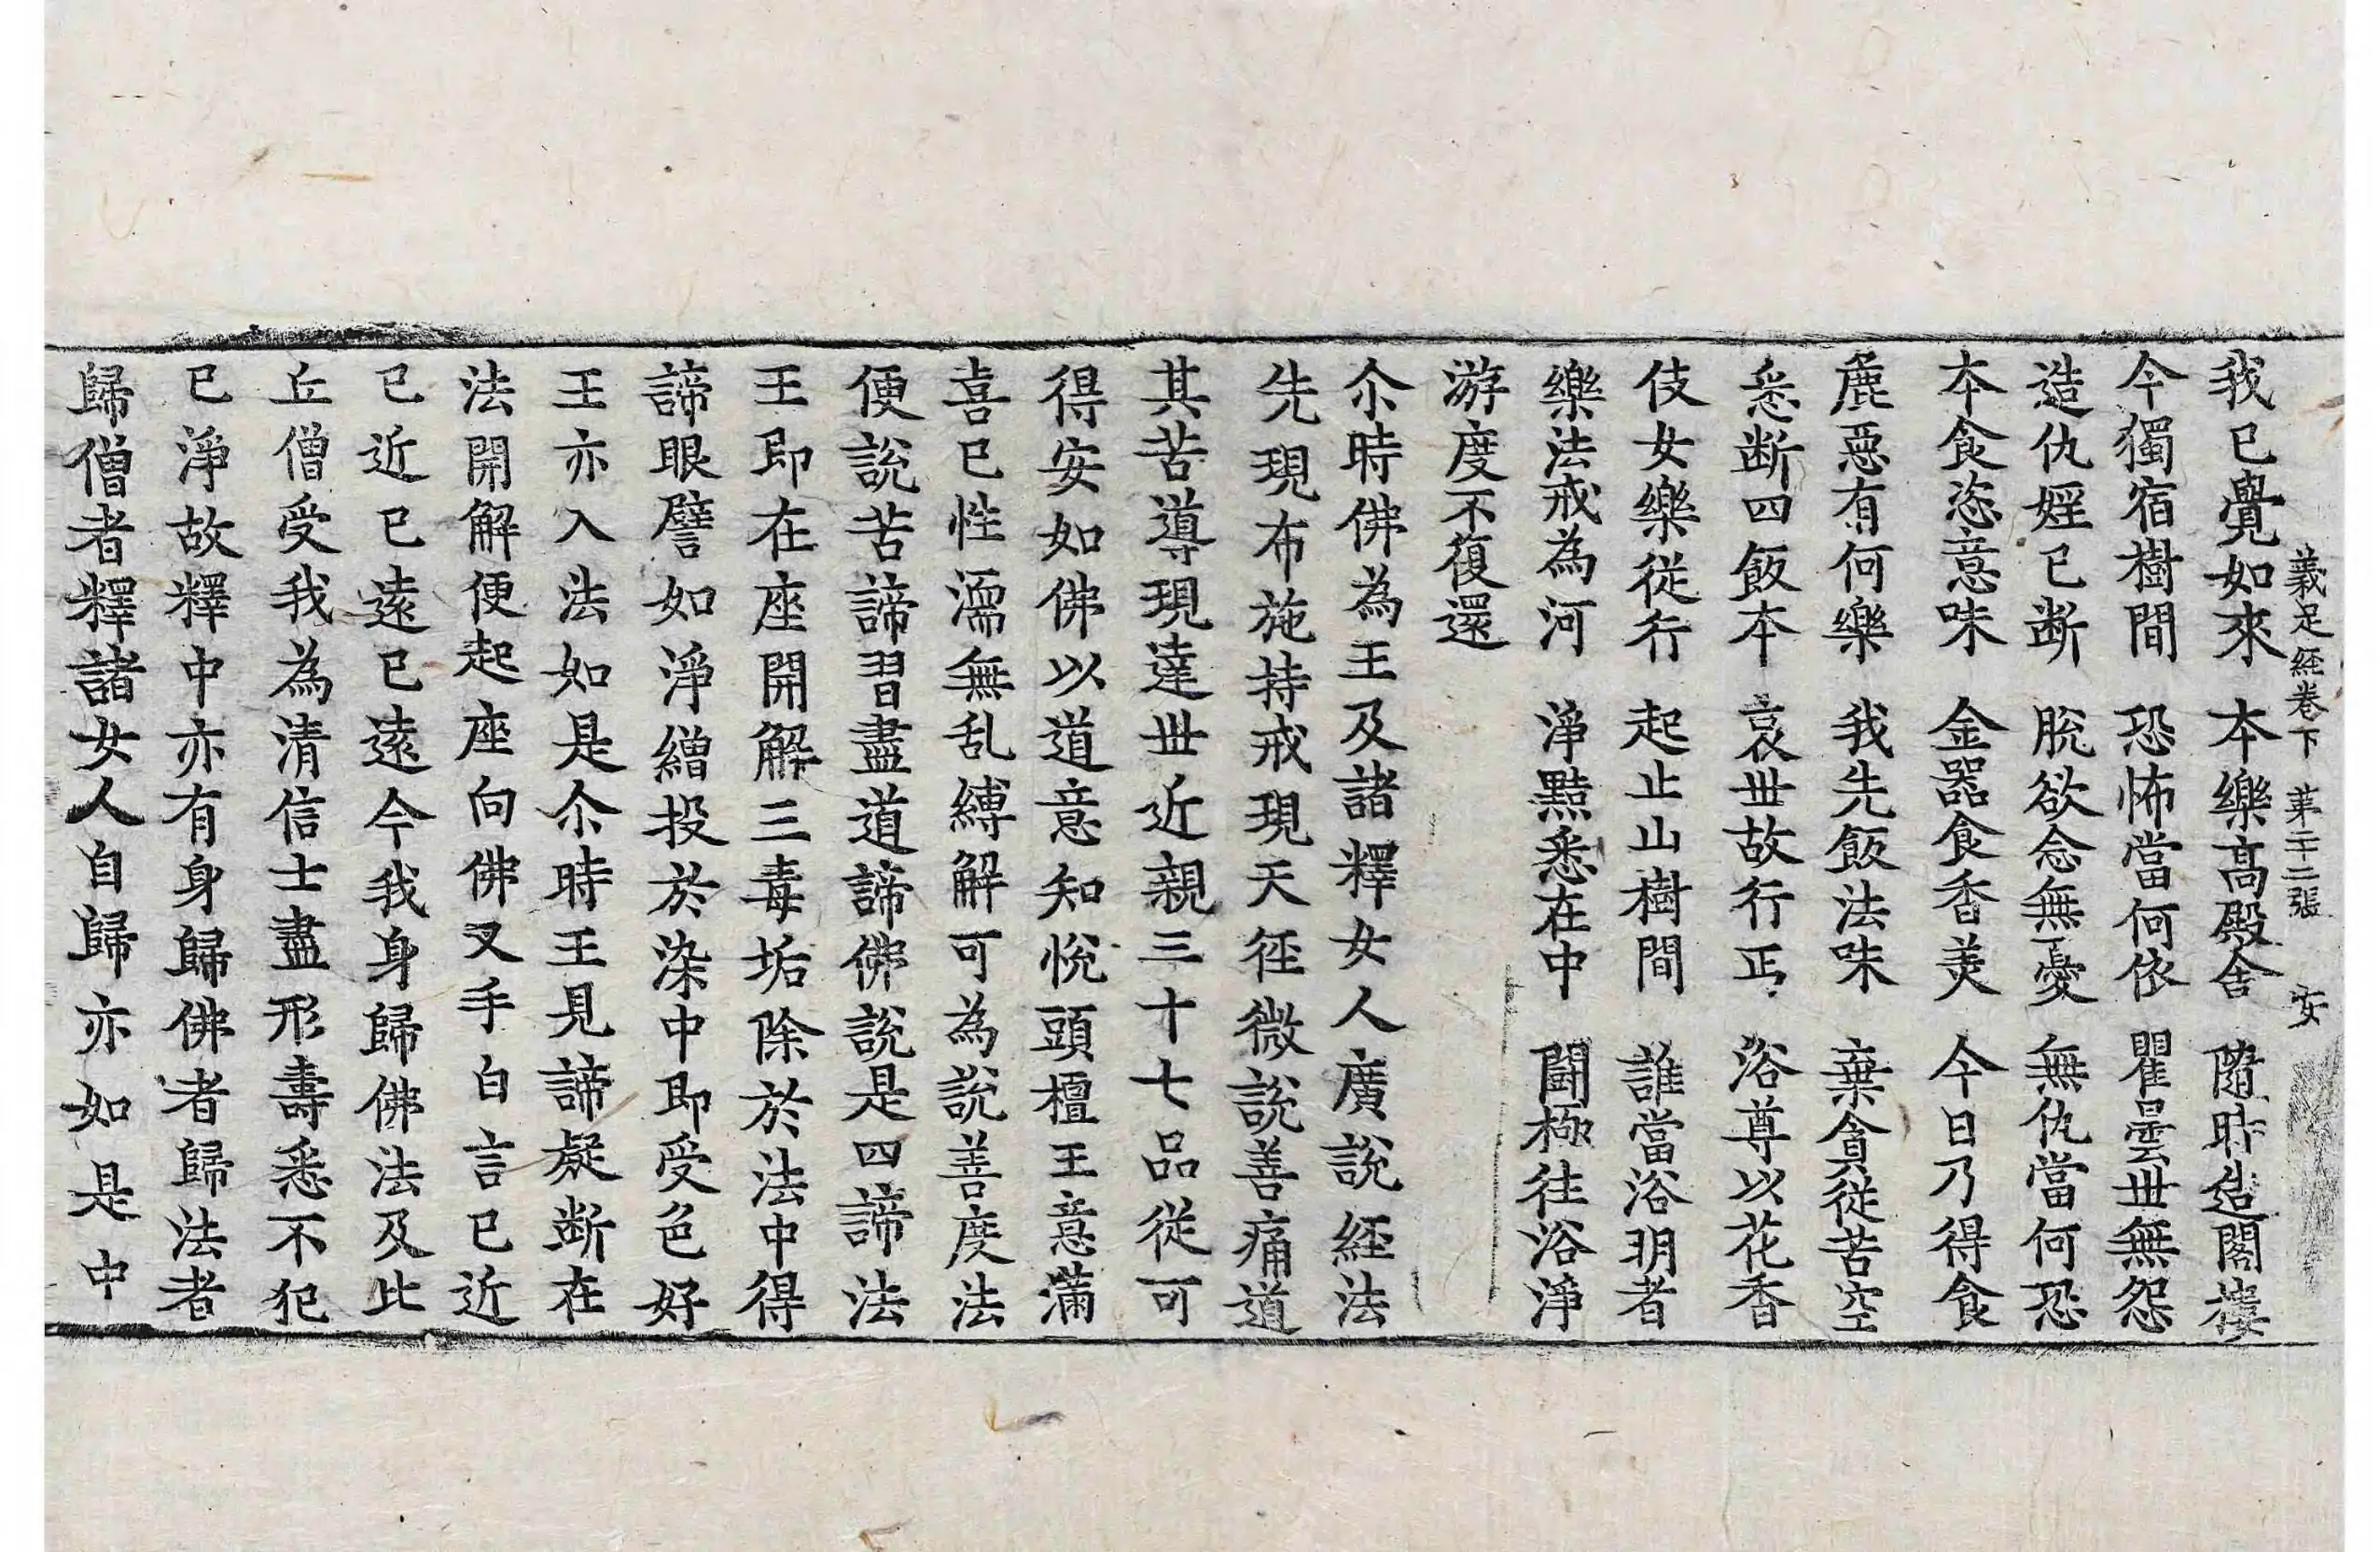 義足經卷下　第二十二張　安
我已覺如來　本樂高殿舍　隨時造閣樓
今獨宿樹間　恐怖當何依　瞿曇世無怨
造仇婬已斷　脫欲念無憂　無仇當何恐
本食恣意味　金器食香美　今日乃得食
麁惡有何樂　我先飯法味　棄貪從苦空
悉断四飯本　哀世故行丐　浴尊以花香
伎女樂從行　起止山樹間　誰當浴明者
樂法戒為河　淨黠悉在中　鬪極往浴淨
游度不復還
尒時佛為王及諸釋女人廣說經法
先現布施持戒現天徑微說善痛道
其苦導現達世近親三十七品從可
得安如佛以道意知悅頭檀王意滿
喜已性濡無乱縛解可為說善度法
便說苦諦習盡道諦佛說是四諦法
王即在座開解三毒垢除於法中得
諦眼譬如淨繒投於染中即受色好
王亦入法如是尒時王見諦疑断在
法開解便起座向佛叉手白言已近
已近已遠已遠今我身歸佛法及比
丘僧受我為清信士盡形壽悉不犯
已淨故釋中亦有身歸佛者歸法者
歸僧者釋諸女人自歸亦如是中